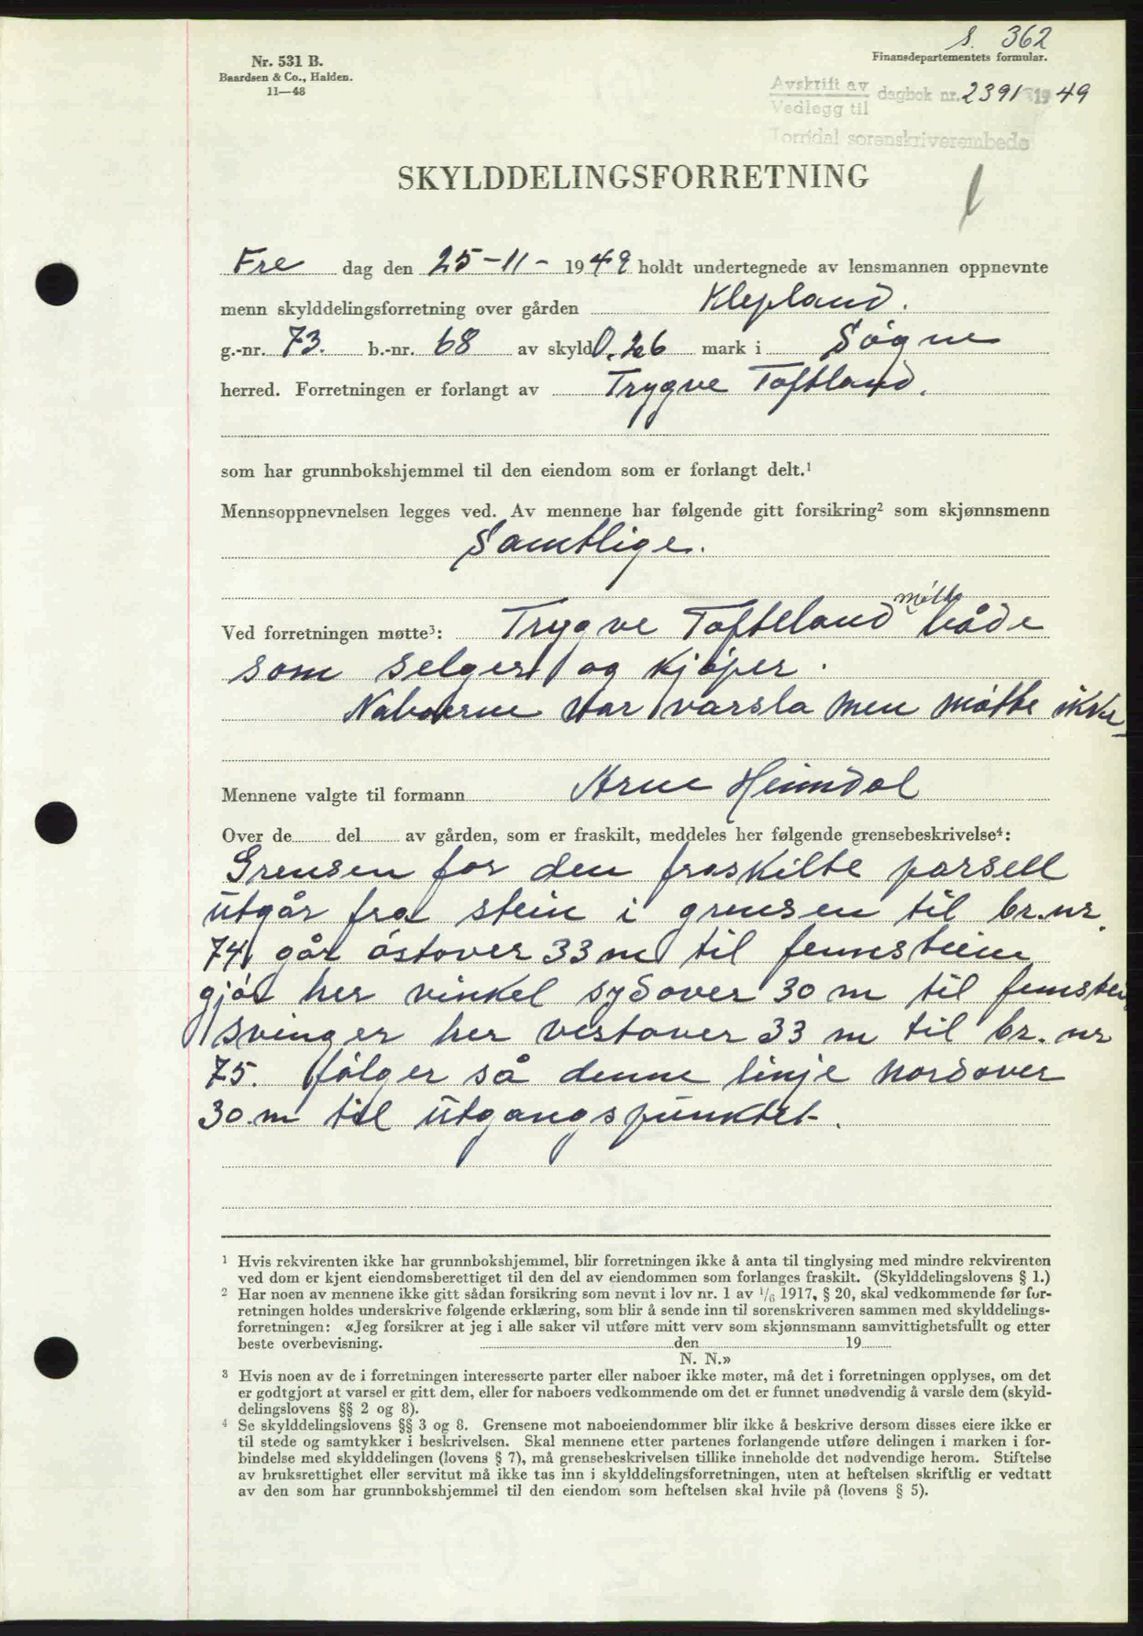 s. 362
Nr. 531 B.
Baardsen & Co., Halden.
11—48
Finansdepartementets formular.
Avskrift av
Vedlegg til
dagbok nr. 2391 1949
Torridal sorenskriverembede
SKYLDDELINGSFORRETNING
1
Fre dag den 25-11- 1949 holdt undertegnede av lensmannen oppnevnte
menn skylddelingsforretning over gården Klepland.
g.-nr. 73. b.-nr. 68 av skyld 0.26 mark i Søgne
herred. Forretningen er forlangt av Trygve Toftland.
som har grunnbokshjemmel til den eiendom som er forlangt delt.¹
Mennsoppnevnelsen legges ved. Av mennene har følgende gitt forsikring² som skjønnsmenn
Samtlige.
Ved forretningen møtte³: Trygve Tofteland møtte både
som selger og kjøper.
Naboerne var varsla men møtte ikke
Mennene valgte til formann Arne Heimdal
Over de del av gården, som er fraskilt, meddeles her følgende grensebeskrivelse⁴:
Grensen for den fraskilte parsell
utgår fra stein i grensen til br.nr.
74, går østover 33 m til fennstein
gjør her vinkel sydover 30 m til fennstein
svinger her vestover 33 m til br. nr
75. følger så denne linje nordover
30 m til utgangspunktet.
¹ Hvis rekvirenten ikke har grunnbokshjemmel, blir forretningen ikke å anta til tinglysing med mindre rekvirenten
ved dom er kjent eiendomsberettiget til den del av eiendommen som forlanges fraskilt. (Skylddelingslovens § 1.)
² Har noen av mennene ikke gitt sådan forsikring som nevnt i lov nr. 1 av 1/6 1917, § 20, skal vedkommende før for-
retningen holdes underskrive følgende erklæring, som blir å sende inn til sorenskriveren sammen med skylddelings-
forretningen: «Jeg forsikrer at jeg i alle saker vil utføre mitt verv som skjønnsmann samvittighetsfullt og etter
beste overbevisning. den 19
N. N.»
³ Hvis noen av de i forretningen interesserte parter eller naboer ikke møter, må det i forretningen opplyses, om det
er godtgjort at varsel er gitt dem, eller for naboers vedkommende om det er funnet unødvendig å varsle dem (skyld-
delingslovens §§ 2 og 8).
⁴ Se skylddelingslovens §§ 3 og 8. Grensene mot naboeiendommer blir ikke å beskrive dersom disses eiere ikke er
til stede og samtykker i beskrivelsen. Skal mennene etter partenes forlangende utføre delingen i marken i for-
bindelse med skylddelingen (lovens § 7), må grensebeskrivelsen tillike inneholde det nødvendige herom. Stiftelse
av bruksrettighet eller servitut må ikke tas inn i skylddelingsforretningen, uten at heftelsen skriftlig er vedtatt
av den som har grunnbokshjemmel til den eiendom som heftelsen skal hvile på (lovens § 5).